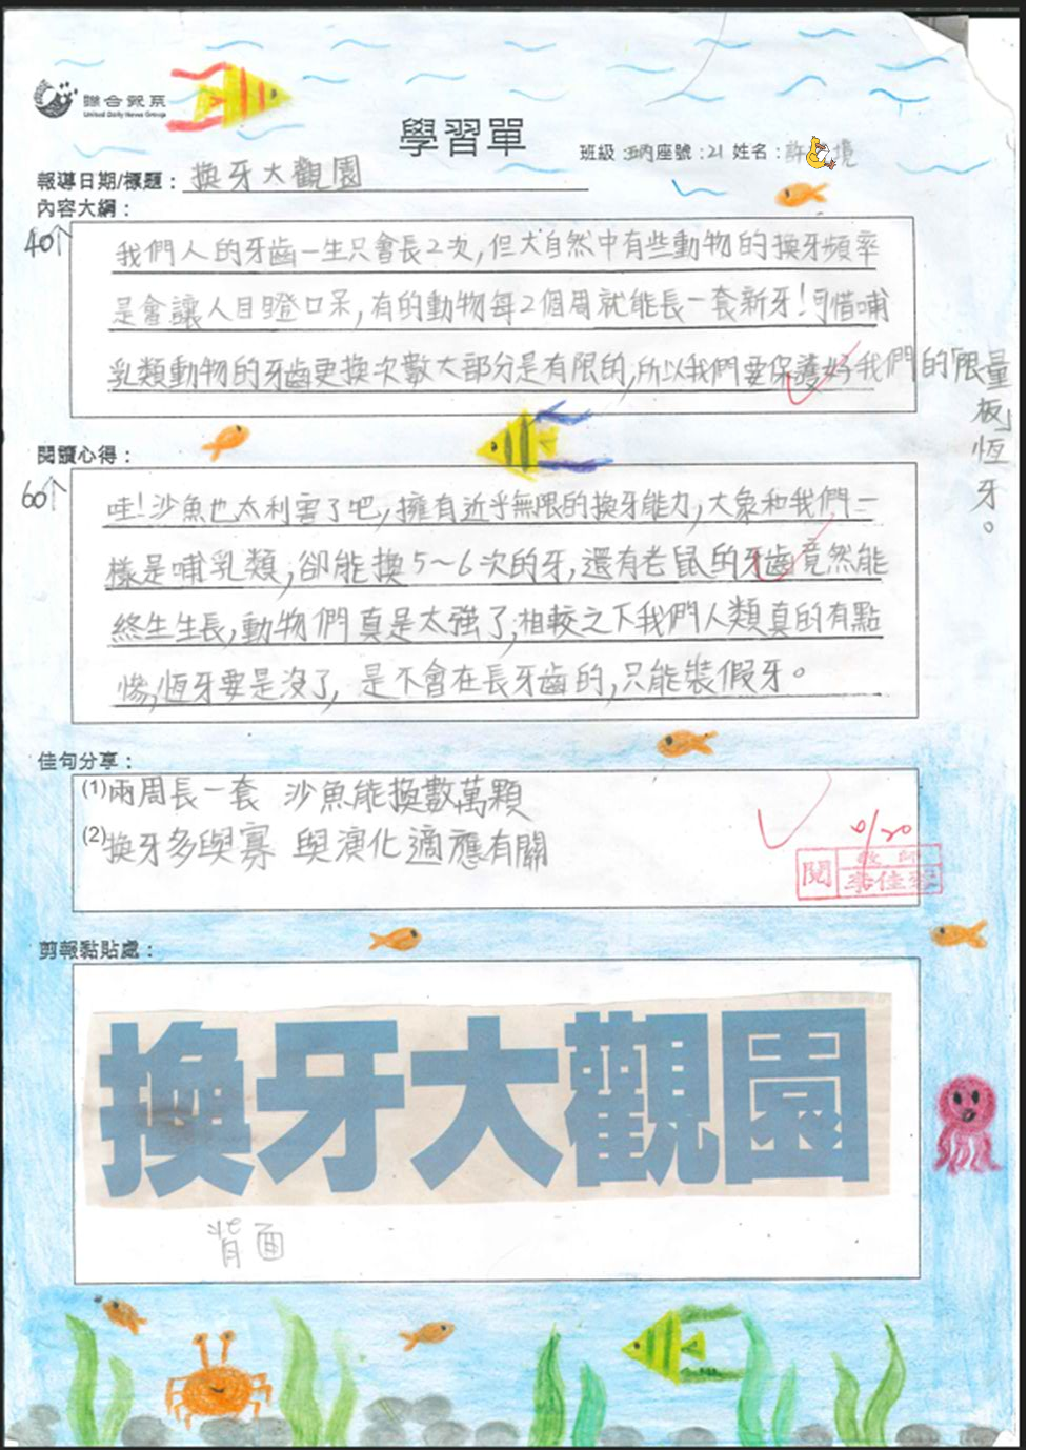 聯合報系
United Daily News Group
學習單
班級：五丙 座號：21 姓名：許 境
報導日期/標題：換牙大觀園
內容大綱：
40个
我們人的牙齒一生只會長2次,但大自然中有些動物的換牙頻率
是會讓人目瞪口呆,有的動物每2個周就能長一套新牙!可惜哺
乳類動物的牙齒更換次數大部分是有限的,所以我們要保護好我們的「限量
板」恆牙。
閱讀心得：
60个
哇!沙魚也太利害了吧,擁有近乎無限的換牙能力,大象和我們一
樣是哺乳類,卻能換5~6次的牙,還有老鼠的牙齒竟然能
終生生長,動物們真是太強了,相較之下我們人類真的有點
慘,恆牙要是沒了,是不會在長牙齒的,只能裝假牙。
佳句分享：
(1)兩周長一套 沙魚能換數萬顆
(2)換牙多與寡 與演化適應有關
10/20
閱
教師
李佳
剪報黏貼處：
換牙大觀園
背面